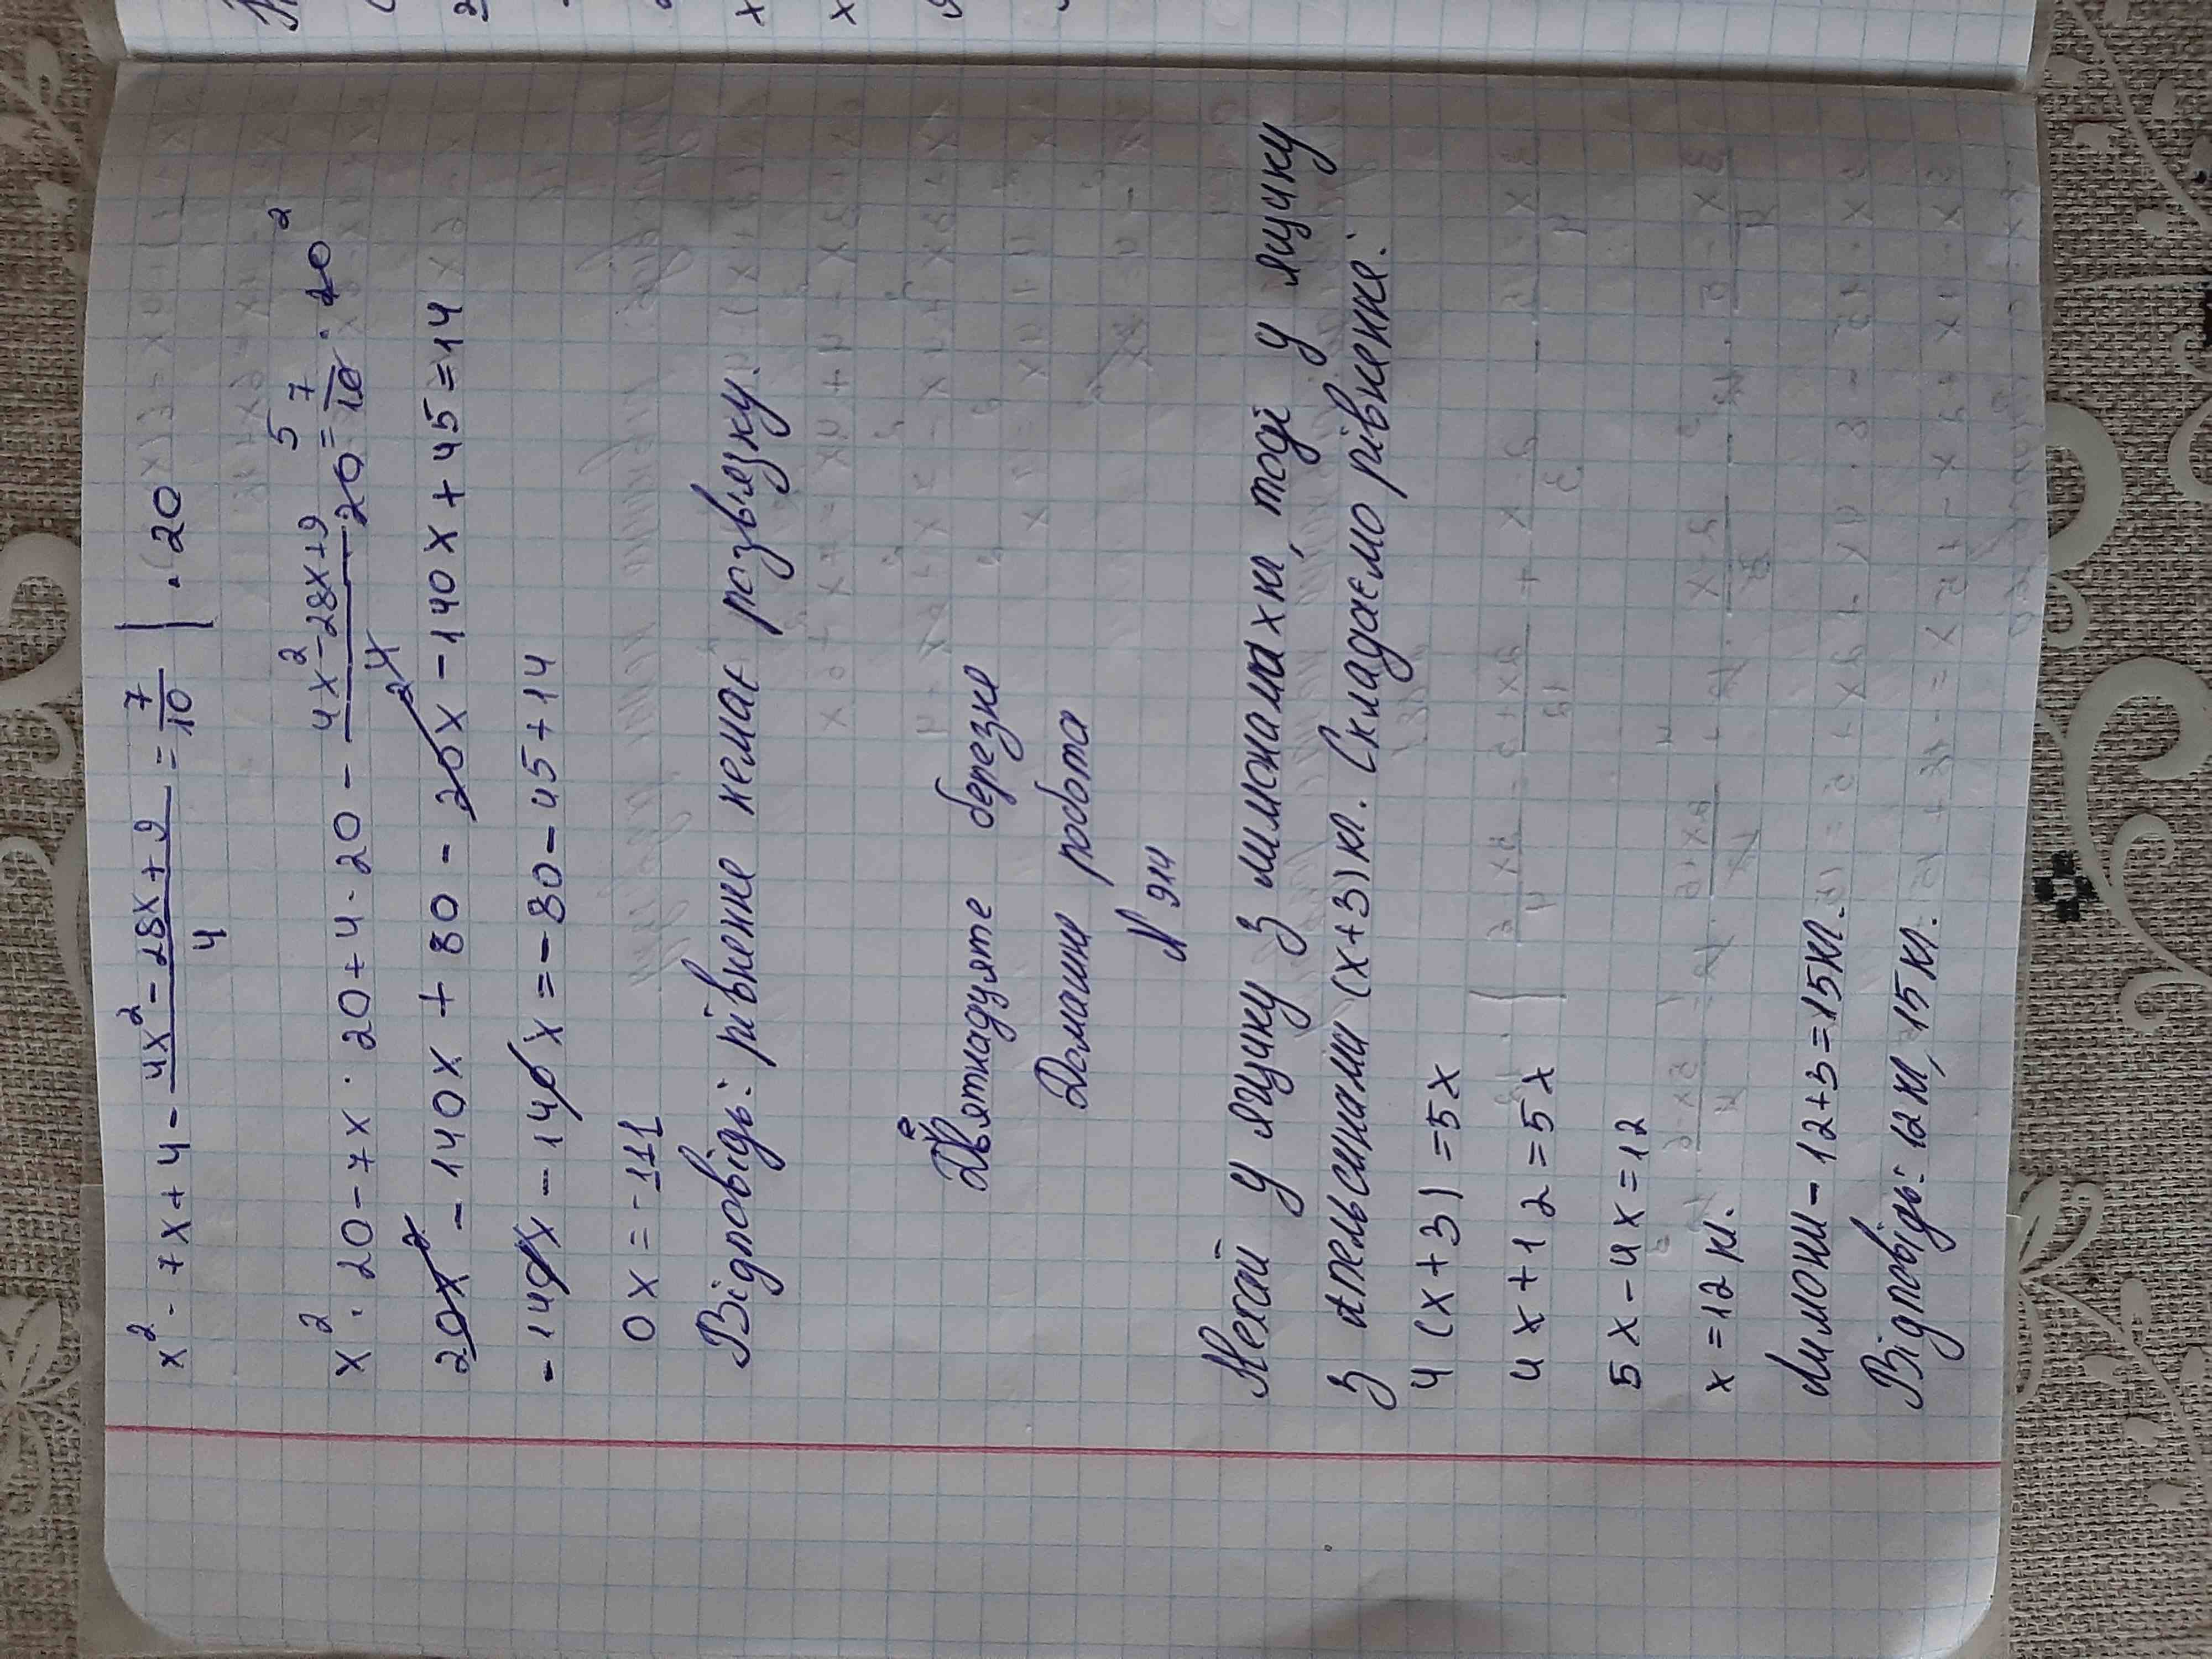 x² - 7x + 4 - (4x² - 28x + 9)/4 = 7/10 | · 20
x² · 20 - 7x · 20 + 4 · 20 - (4x² - 28x + 9)/4 20 5 = 7/10 · 20 2
20x² - 140x + 80 - 20x² - 140x + 45 = 14
- 140x - 140x = - 80 - 45 + 14
0x = -111
Відповідь: рівнене немає розвязку.
Девятнадцяте березне
Домашне робота
N 914
Нехай у ящику з лимонами x кг, тоді у ящику
з апельсинами (x+3) кг. Складаємо рівненне:
4 (x + 3) = 5x
4x + 12 = 5x
5x - 4x = 12
x = 12 кг.
Лимони - 12 + 3 = 15 кг.
Відповідь: 12 кг, 15 кг.